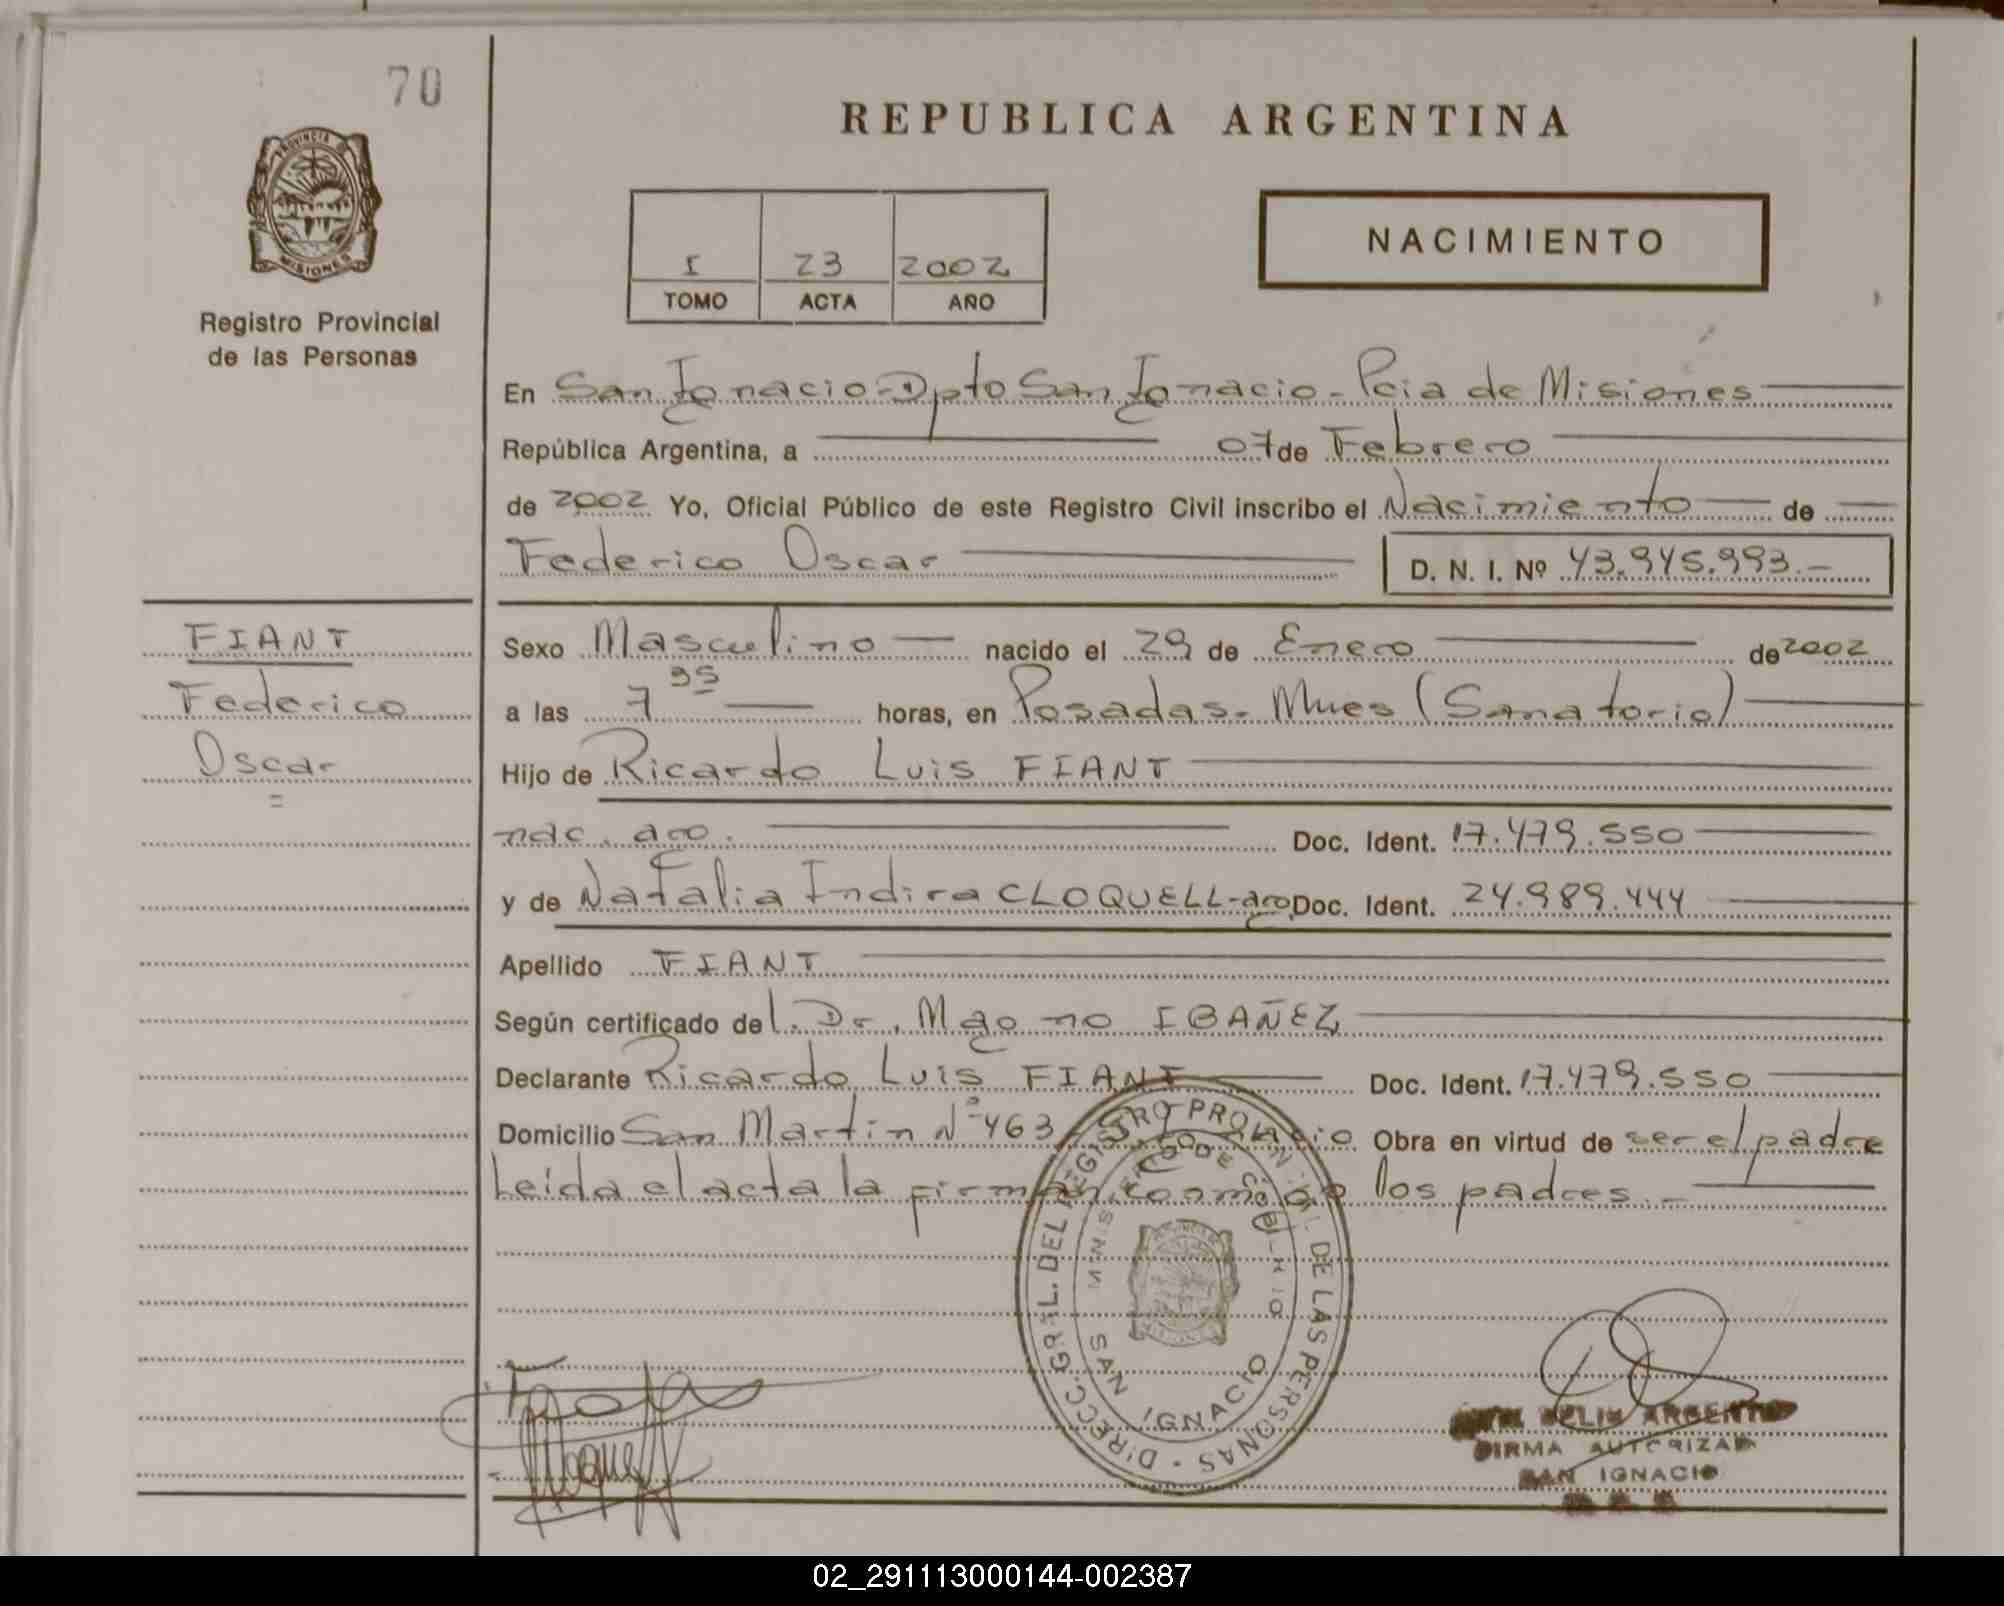 70
PROVINCIA DE
MISIONES
Registro Provincial
de las Personas
REPUBLICA ARGENTINA
I 23 2002
TOMO ACTA AÑO
NACIMIENTO
En San Ignacio - Dpto San Ignacio - Pcia de Misiones
República Argentina, a 07 de Febrero
de 2002 Yo, Oficial Público de este Registro Civil inscribo el Nacimiento de
Federico Oscar D. N. I. Nº 43.945.993.-
FIANT
Federico
Oscar
Sexo Masculino nacido el 29 de Enero de 2002
a las 7 35 horas, en Posadas - Mnes (Sanatorio)
Hijo de Ricardo Luis FIANT
nac. arg. Doc. Ident. 17.479.550
y de Natalia Indira CLOQUELL - arg. Doc. Ident. 24.989.444
Apellido FIANT
Según certificado del. Dr. Magno IBAÑEZ
Declarante Ricardo Luis FIANT Doc. Ident. 17.479.550
Domicilio San Martin Nº 463 S. Ignacio Obra en virtud de ser el padre
Leída el acta la firman conmigo los padres. -
DIRECC. GRAL. DEL REGISTRO PROVINCIAL DE LAS PERSONAS
MINISTERIO DE GOBIERNO
SAN IGNACIO
ARGENTO
FIRMA AUTORIZADA
SAN IGNACIO
02_291113000144-002387